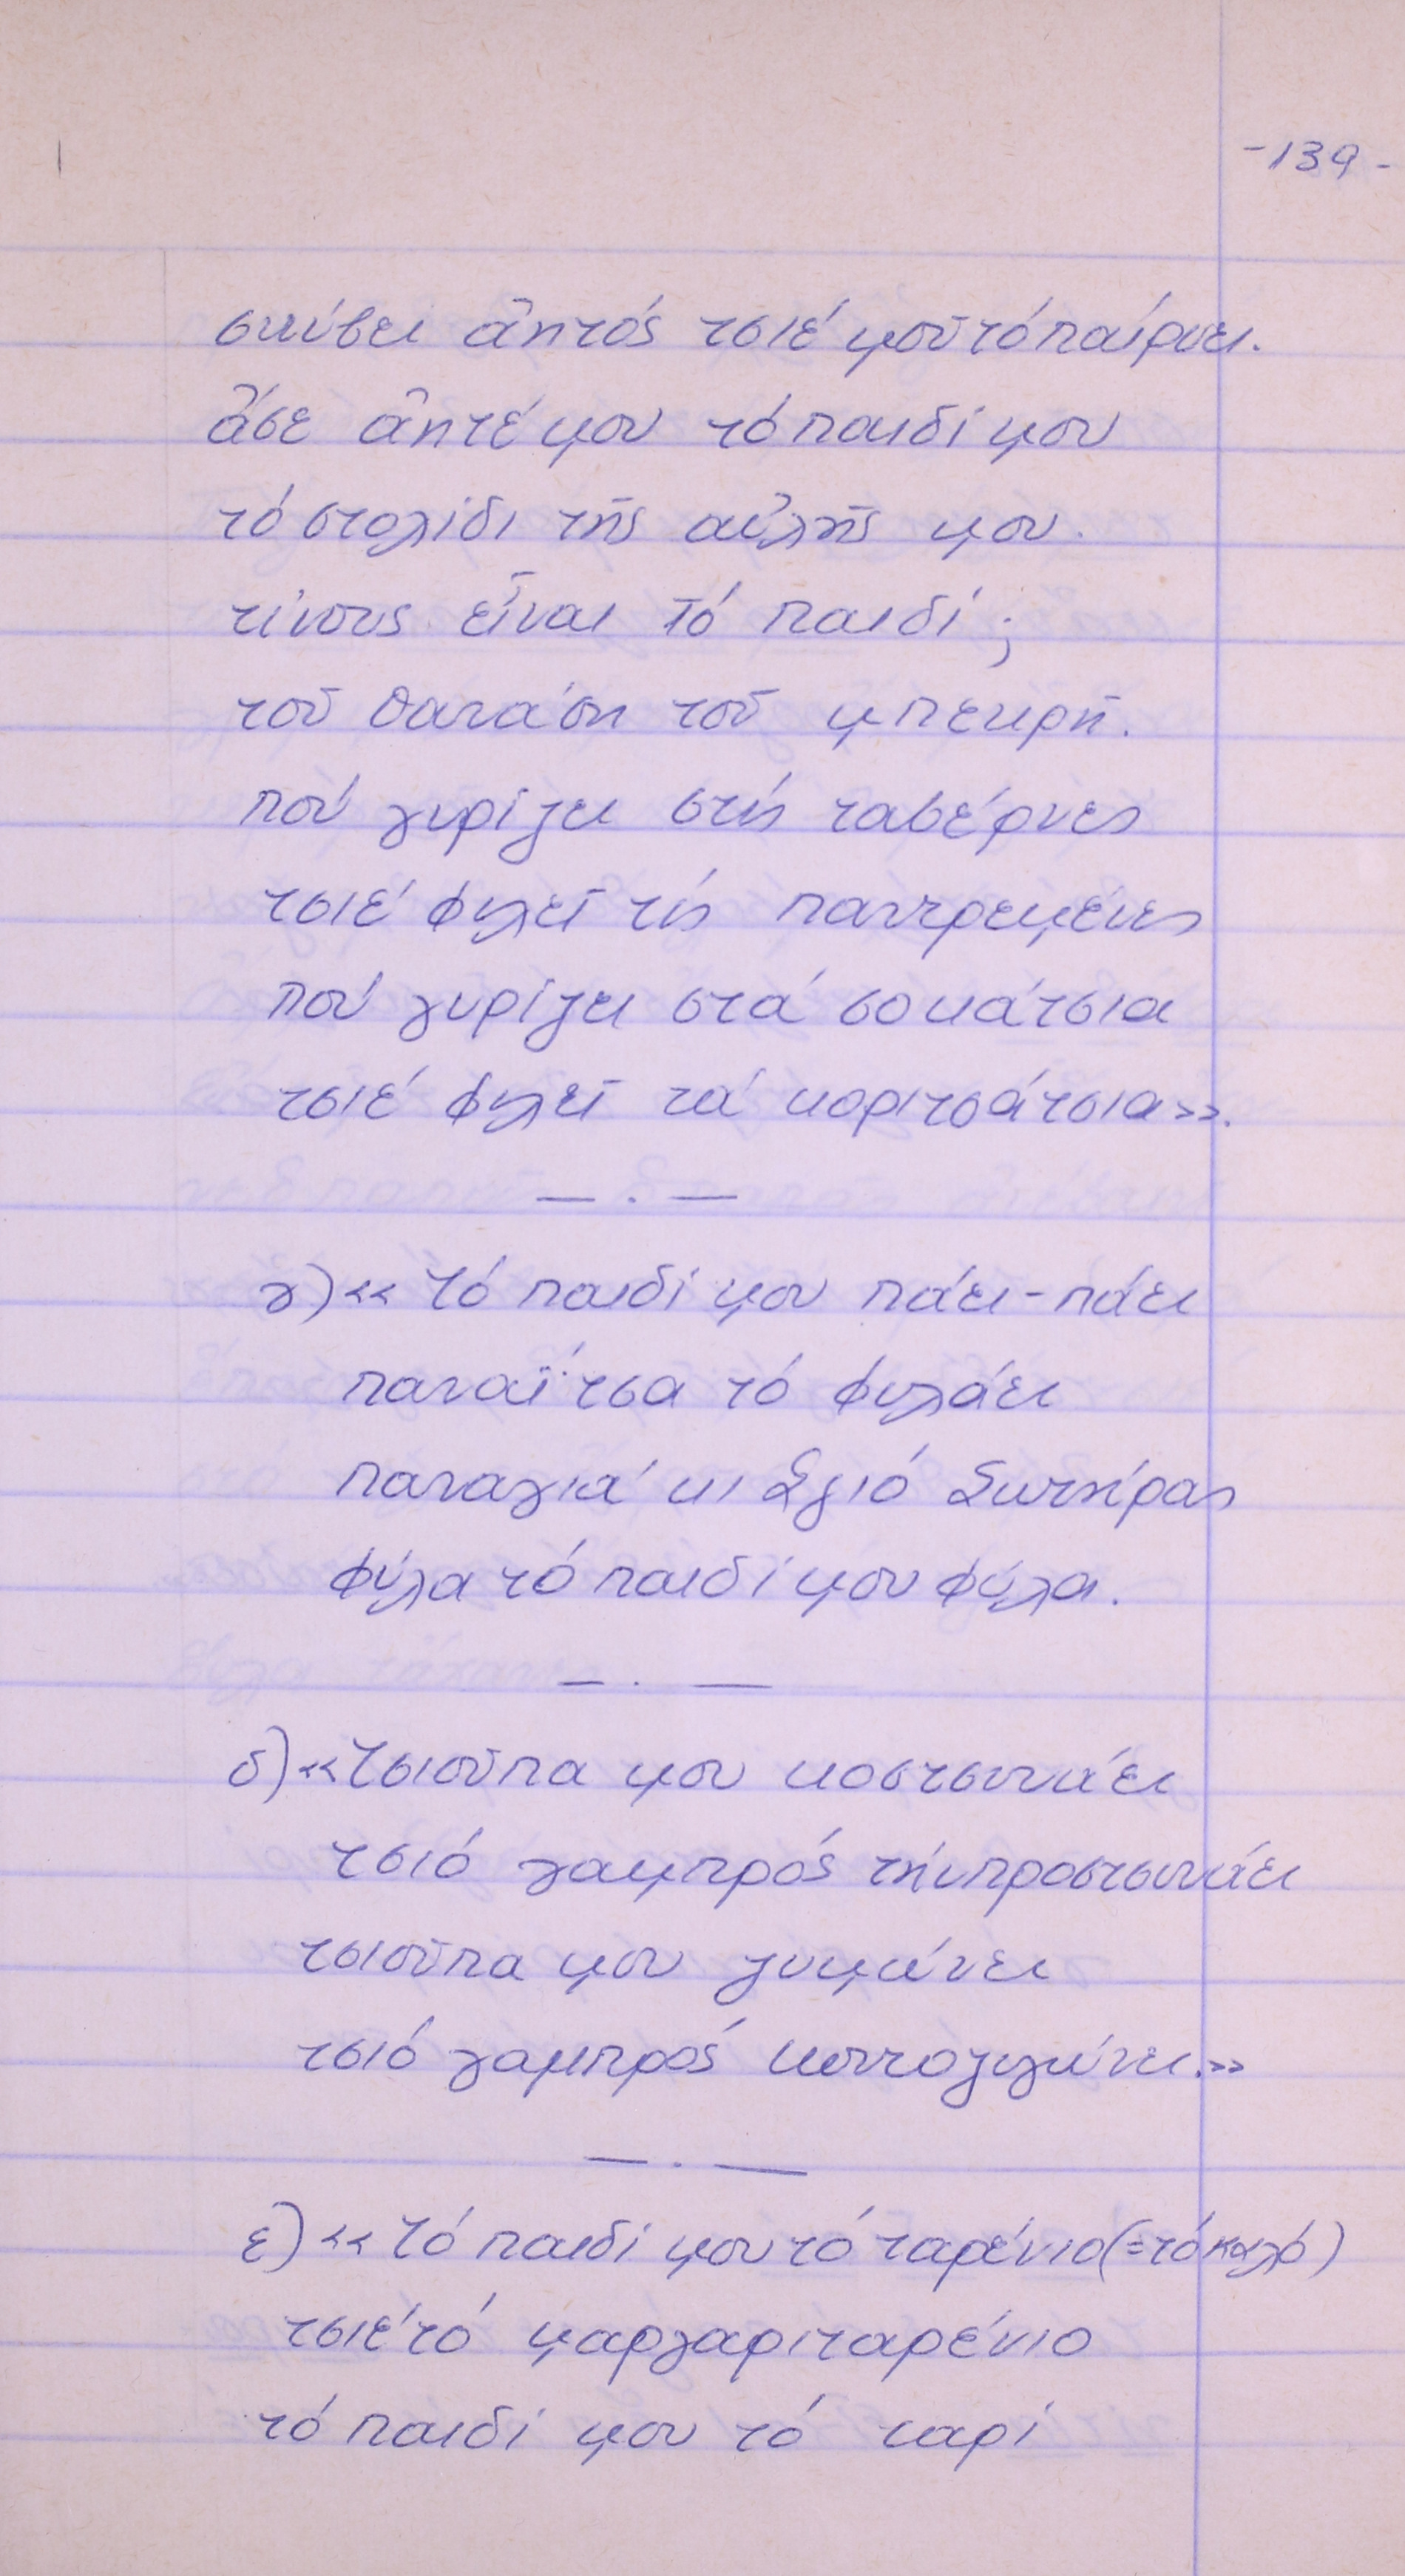 -139-
σκύβει ἀητός τσιέ μοῦ τό παίρνει.
ἄσε ἀητέ μου τό παιδί μου
τό στολίδι τῆς αὐλῆς μου.
τίνους εἶναι τό παιδί;
τοῦ Θανάση τοῦ μπεκρῆ.
πού γυρίζει στίς ταβέρνες
τσιέ φιλεῖ τίς παντρεμένες
πού γυρίζει στά σοκάτσια
τσιέ φιλεῖ τά κοριτσάτσια».
— . —
γ) «Τό παιδί μου πάει-πάει
παναΐτσα τό φυλάει
παναγιά κι Ἁγιό Σωτήρας
φύλα τό παιδί μου φύλα.
— . —
δ) «Τσιοῦπα μου κοστσινάει
τσιό γαμπρός τήν προστσυνάει
τσιοῦπα μου ζυμώνει
τσιό γαμπρός κοντοζυγώνει.»
— . —
ε) «Τό παιδί μου τό ταρένιο (=τό καλό)
τσιέ τό μαργαριταρένιο
τό παιδί μου τό ταρί